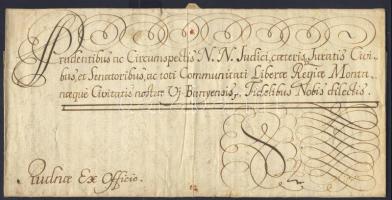 Prudentibus ac Circumspectis N. N. Judici, cæteris Juratis Civi-
bus, et Senatoribus, ac toti Communitati Liberæ Regiæ Monta
næque Civitatis nostræ Uj-Banyensis, Fidelibus Nobis dilectis.
Ex Officio.